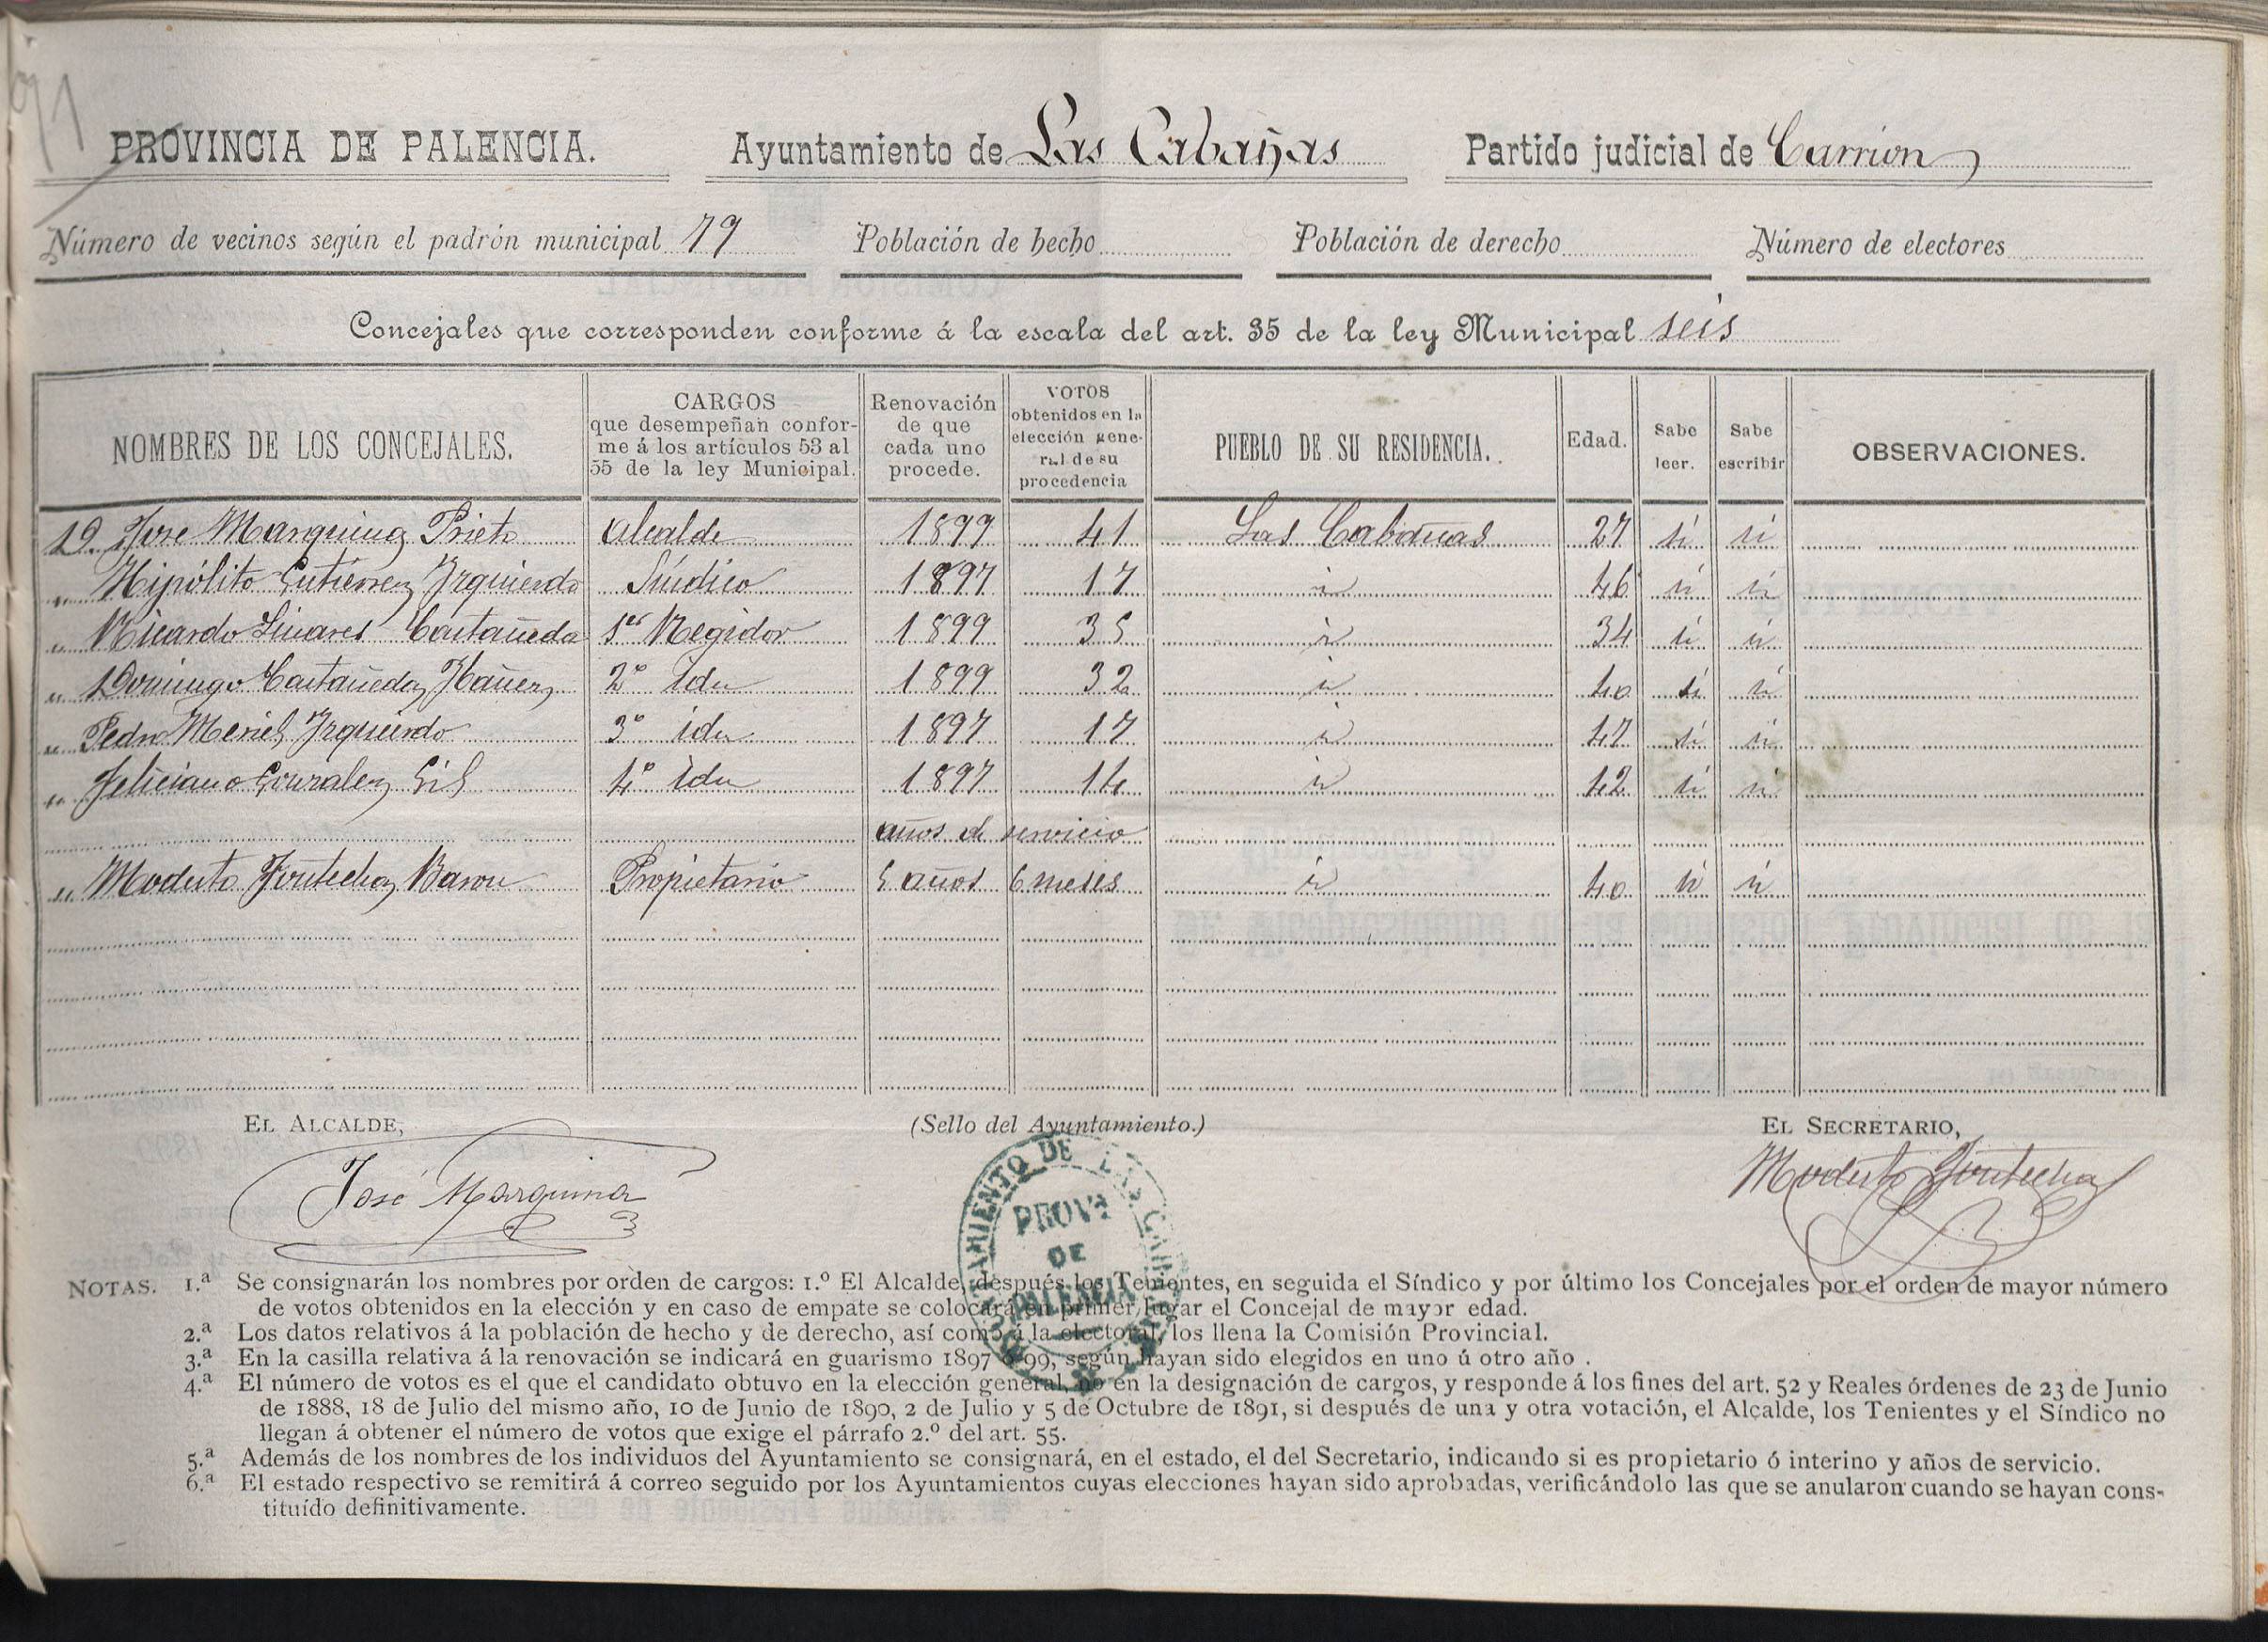 PROVINCIA DE PALENCIA. Ayuntamiento de Las Cabañas Partido judicial de Carrion
Número de vecinos según el padrón municipal 79 Población de hecho Población de derecho Número de electores
Concejales que corresponden conforme á la escala del art. 35 de la ley Municipal seis
NOMBRES DE LOS CONCEJALES.
CARGOS
que desempeñan confor-
me á los artículos 53 al
55 de la ley Municipal.
Renovación
de que
cada uno
procede.
VOTOS
obtenidos en la
elección gene-
ral de su
procedencia
PUEBLO DE SU RESIDENCIA.
Edad.
Sabe
leer.
Sabe
escribir
OBSERVACIONES.
D. Jose Marquina Prieto Alcalde 1899 41 Las Cabañas 27 si si
" Hipólito Gutierrez Yzquierdo Síndico 1897 17 id 46 si si
" Ricardo Linares Castañeda 1er Regidor 1899 35 id 34 si si
" Domingo Castañeda Ybañez 2º idm 1899 32 id 40 si si
" Pedro Meriel Yzquierdo 3º idm 1897 17 id 47 si si
" Feliciano Gonzalez Gil 4º idm 1897 14 id 42 si si
años de servicio
" Modesto Fontecha Baron Propietario 5 años 6 meses id 40 si si
EL ALCALDE,
(Sello del Ayuntamiento.)
EL SECRETARIO,
José Marquina
Modesto Fontecha
AYUNTAMIENTO DE LAS CABAÑAS
PROVª
DE
PALENCIA
NOTAS. 1.ª Se consignarán los nombres por orden de cargos: 1.º El Alcalde, después los Tenientes, en seguida el Síndico y por último los Concejales por el orden de mayor número
de votos obtenidos en la elección y en caso de empate se colocará en primer lugar el Concejal de mayor edad.
2.ª Los datos relativos á la población de hecho y de derecho, así como á la electoral, los llena la Comisión Provincial.
3.ª En la casilla relativa á la renovación se indicará en guarismo 1897 ó 99, según hayan sido elegidos en uno ú otro año .
4.ª El número de votos es el que el candidato obtuvo en la elección general, no en la designación de cargos, y responde á los fines del art. 52 y Reales órdenes de 23 de Junio
de 1888, 18 de Julio del mismo año, 10 de Junio de 1890, 2 de Julio y 5 de Octubre de 1891, si después de una y otra votación, el Alcalde, los Tenientes y el Síndico no
llegan á obtener el número de votos que exige el párrafo 2.º del art. 55.
5.ª Además de los nombres de los individuos del Ayuntamiento se consignará, en el estado, el del Secretario, indicando si es propietario ó interino y años de servicio.
6.ª El estado respectivo se remitirá á correo seguido por los Ayuntamientos cuyas elecciones hayan sido aprobadas, verificándolo las que se anularon cuando se hayan cons-
tituído definitivamente.